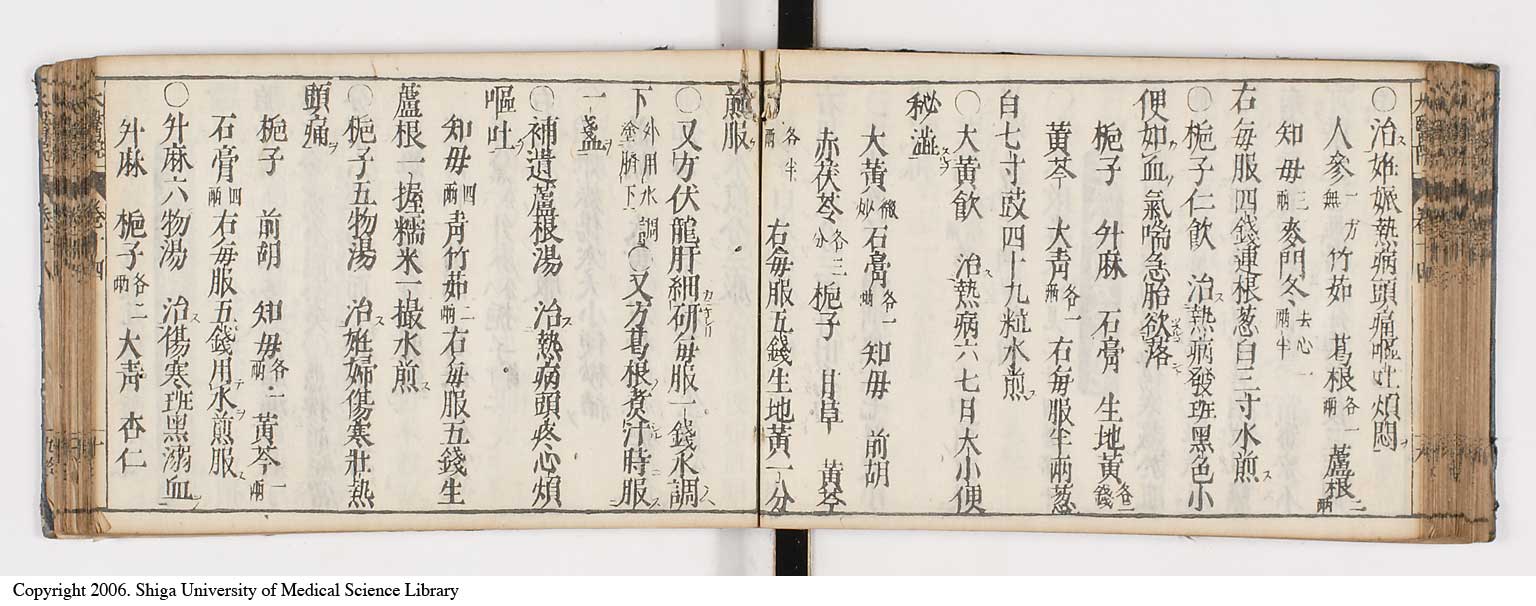 〇治姙娠熱病頭痛嘔吐煩悶
人參一方無 竹茹 葛根各一兩 蘆根二兩
知毋三兩 麥門冬去心一兩半
右毎服四錢連根葱白三寸水煎
〇梔子仁飲 治熱病發班黑色小
便如血氣喘急胎欲落
梔子 升麻 石膏 生地黃各二錢
黃芩 大靑各一兩 右毎服半兩葱
白七寸豉四十九粒水煎
〇大黃飲 治熱病六七日大小便
秘澁
大黃微炒 石膏各一兩 知毋 前胡
赤茯苓各三分 梔子 甘草 黃芩
各半兩 右毎服五錢生地黃一分
煎服
〇又方伏龍肝細研毎服一錢水調
下外用水調塗臍下 〇又方葛根煑汁時服
一盞
〇補遺蘆根湯 治熱病頭疼心煩
嘔吐
知毋四兩 靑竹茹二兩 右毎服五錢生
蘆根一握糯米一撮水煎
〇梔子五物湯 治姙婦傷寒壯熱
頭痛
梔子 前胡 知毋各二兩 黃芩一兩
石膏四兩 右毎服五錢用水煎服
〇升麻六物湯 治傷寒班黑溺血
升麻 梔子各二兩 大靑 杏仁